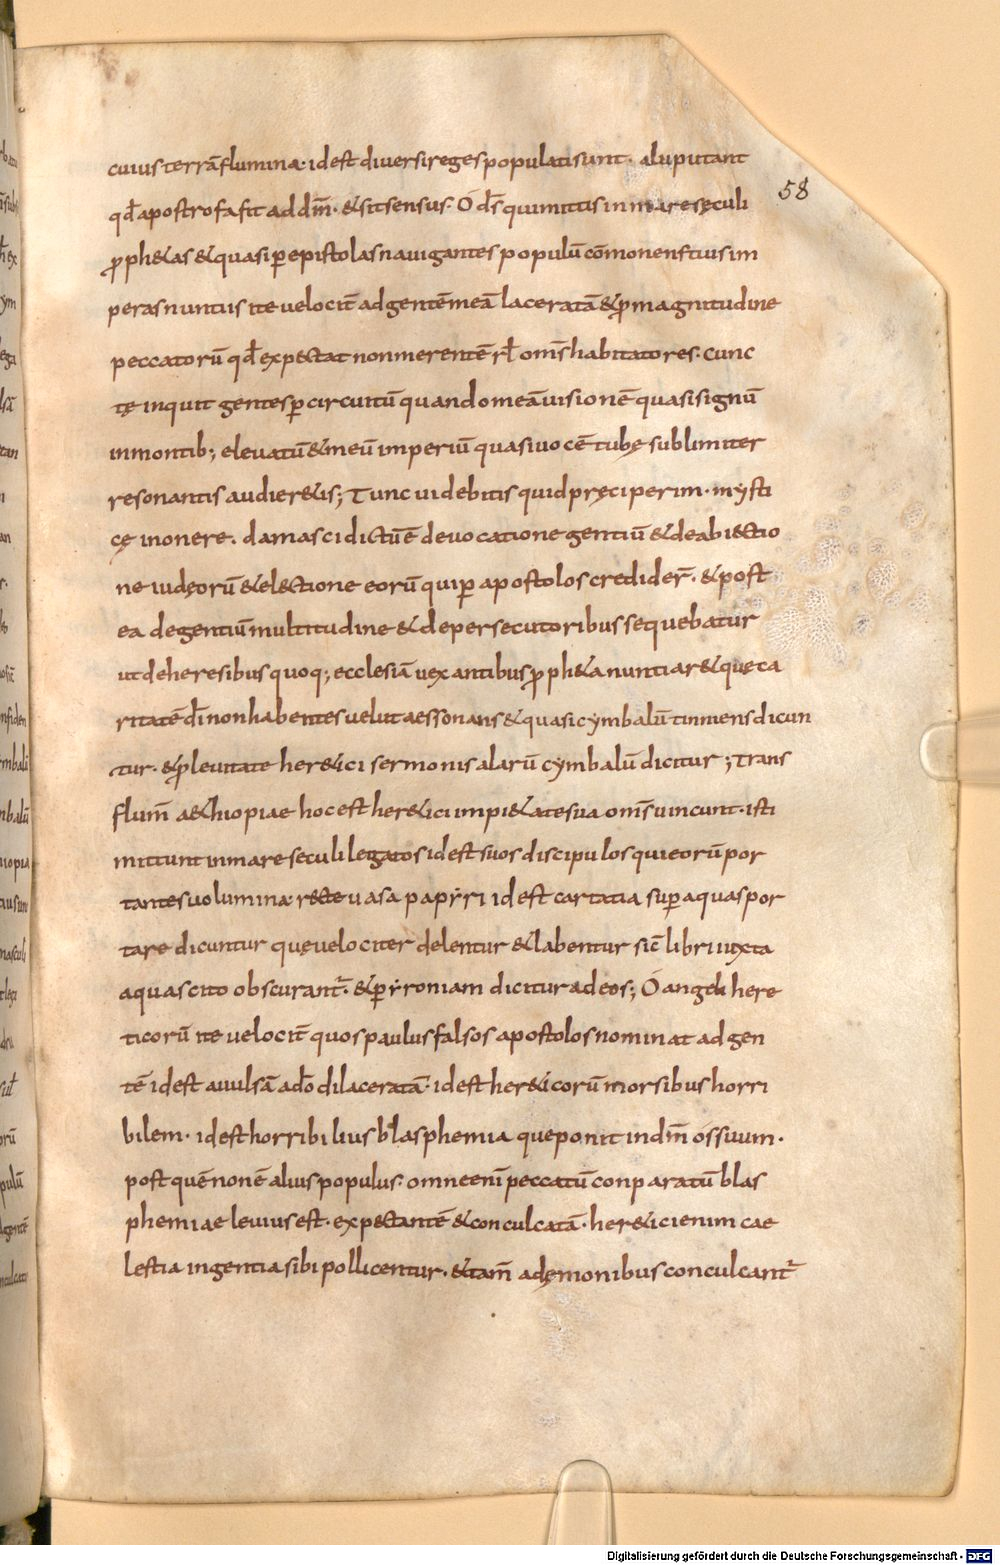 cuius terrā flumina· id est diversi reges populati sunt· alii putant
58
qđ apostrofa fit ad dm̄· & sit sensus· O d̄s qui mittis in mare sęculi
ꝓph&as & quasi ꝑ epistolas navigantes populū cōmonens cuius im
peras nuntiis ite velocit̄ ad gentē meā laceratā & ꝓ magnitudine
peccatorū qđ expectat non merentē ł om̄s habitatores· cunc
tę inquit gentes ꝑ circuitū quando meā visionē quasi signū
in montib; elevatū & meū imperiū quasi vocē tubę sublimiter
resonantis audier&is; Tunc videbitis quid pręciperim· mÿsti
cę in onere· damasci dictū ē de vocatione gentiū & de abiectio
ne iudęorū & electione eorū qui ꝑ apostolos credider̄· & post
ea de gentiū multitudine & de persecutoribus sequebatur
ut de heresibus quoq; ecclesiā vexantibus ꝓph&a nuntiar& quę ca
ritatē dī non habentes velut aes sonans & quasi cymbalū tinniens dicun
tur· & ꝓ levitate her&ici sermonis alarū cymbalū dicitur; Trans
flum̄ a&hiopiae hoc est her&ici impi&ate sua om̄s vincunt· isti
mittunt in mare seculi legatos id est suos discipulos qui eorū por
tantes volumina· recte vasa papÿri id est cartatia suꝑ aquas por
tare dicuntur quę velociter delentur & labentur sic̄ libri iuxta
aquas cito obscurant᷑· & ꝑ ÿroniam dicitur ad eos; O angeli here
ticorū ite velocit̄ quos paulus falsos apostolos nominat ad gen
tē id est avulsā a dō dilaceratā· id est her&icorū morsibus horri
bilem· id est horribilius blasphemia que ponit in dm̄ os suum·
post quē non ē alius populus· omne enī peccatū conparatū blas
phemiae levius est· expectantē & conculcatā· her&ici enim cae
lestia ingentia sibi pollicentur· & tam̄ a dęmonibus conculcant᷑
Digitalisierung gefördert durch die Deutsche Forschungsgemeinschaft - DFG